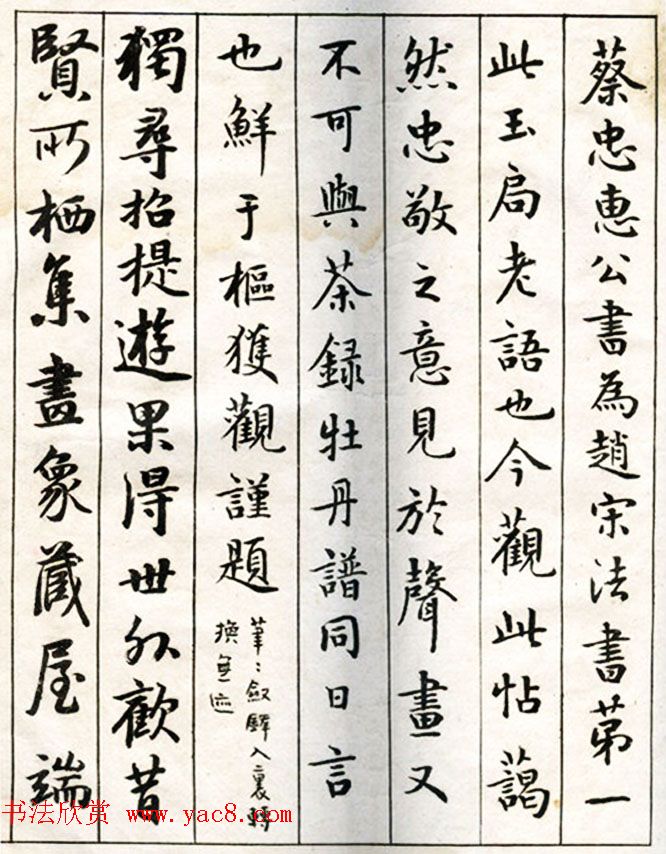 蔡忠惠公書為趙宋法書苐一
此玉局老語也今觀此帖藹
然忠敬之意見於聲畫又
不可與茶録牡丹譜同日言
也鮮于樞獲觀謹題
筆〻斂鋒入裏轉
換無迹
獨尋招提遊果得世外歡昔
賢所栖集畫象蔵屋端
书法欣赏 www.yac8.com